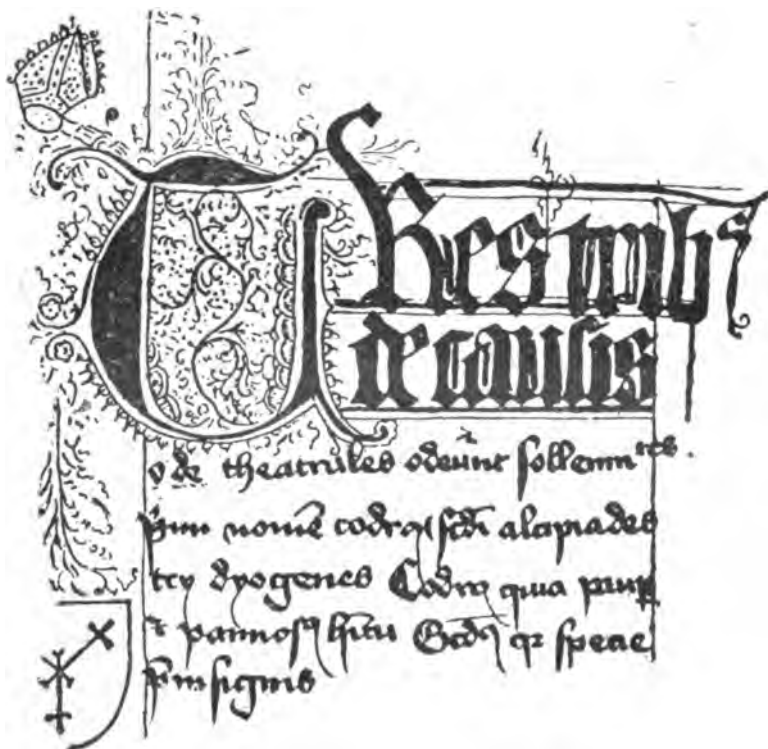 Tres tribꝰ
de causis
g̃ de theatrales odeũnt sollemnˢ tˢ .
pͥmi nomē codrꝯ scd̃i alcipiades
tcÿ dyogenes Codrꝯ quia paup̱
⁊ pannosꝯ hĩtu Scd̃ꝯ qꝛ specie
p̃insignis